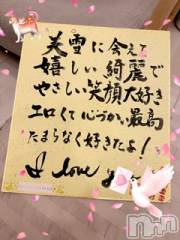 美雪に会えて
嬉しい綺麗で
やさしい笑顔大好き
エロくて心づかい最高
たまらなく好きだよ!
I love you